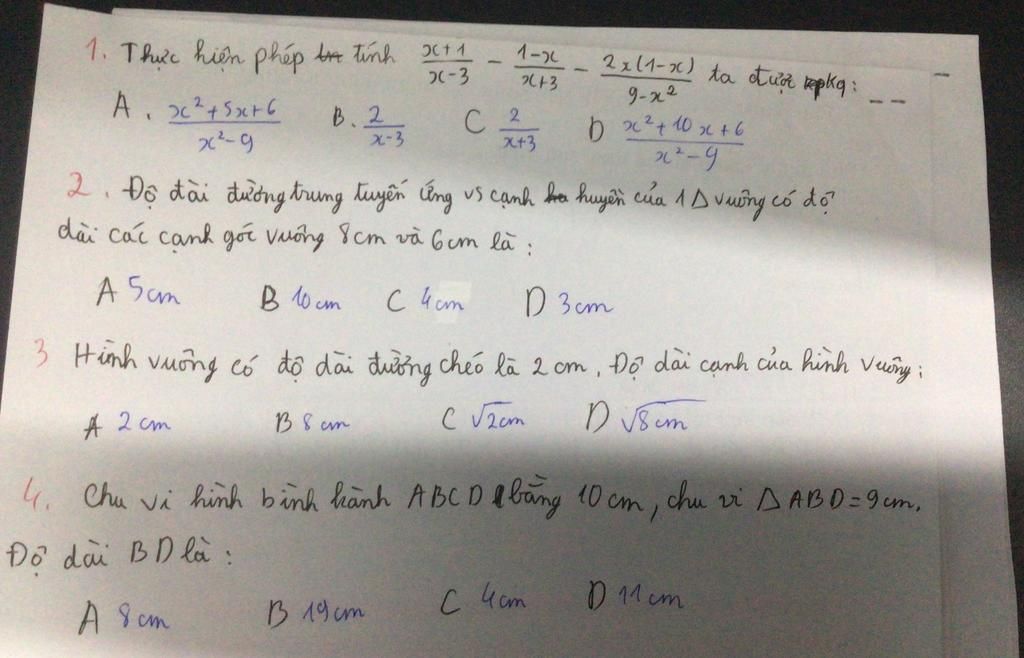 1. Thực hiện phép tính \frac{x+1}{x-3} - \frac{1-x}{x+3} - \frac{2x(1-x)}{9-x^2} ta được Kq: _ _
A. \frac{x^2+5x+6}{x^2-9} B. \frac{2}{x-3} C \frac{2}{x+3} D \frac{x^2+10x+6}{x^2-9}
2. Độ dài đường trung tuyến ứng vs cạnh huyền của 1 Δ vuông có độ
dài các cạnh góc vuông 8cm và 6cm là:
A 5cm B 10cm C 4cm D 3cm
3 Hình vuông có độ dài đường chéo là 2cm, Độ dài cạnh của hình vuông:
A 2cm B 8cm C √2cm D √8cm
4. Chu vi hình bình hành ABCD bằng 10cm, chu vi Δ ABD=9cm.
Độ dài BD là:
A 8cm B 19cm C 4cm D 11cm